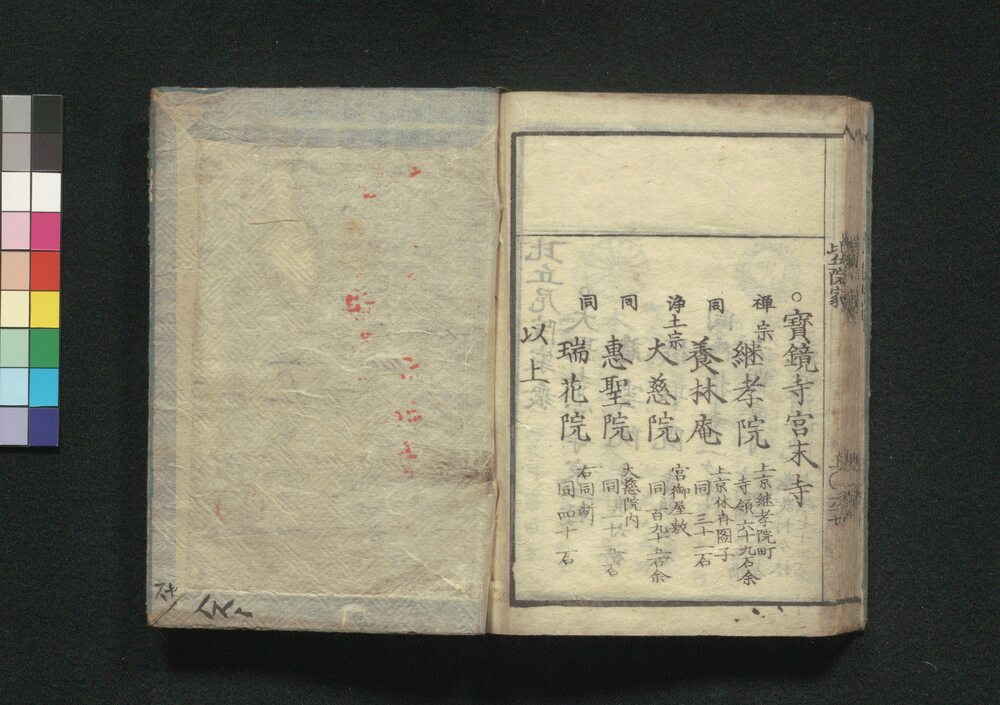 ○寳鏡寺宮末寺
禅宗 継孝院 上京継孝院町
寺領六十九石余
同 養林庵
同 三十二石
浄土宗 大慈院 宮御屋敷
同 百九十五石余
同 惠聖院 大慈院内
同
同 瑞花院 右同断
同 四十石
以上
比丘尼院家